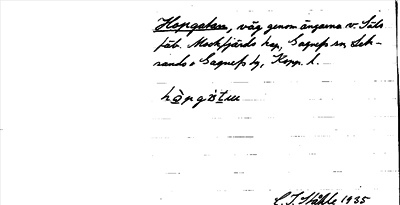 Hopgatan, väg genom ängarna v. Säls
fäb. Mockfjärds kap, Gagnefs sn, Leksands o Gagnefs tg, Kopp. l.
hòpgåtu
C. I. Ståhle 1935